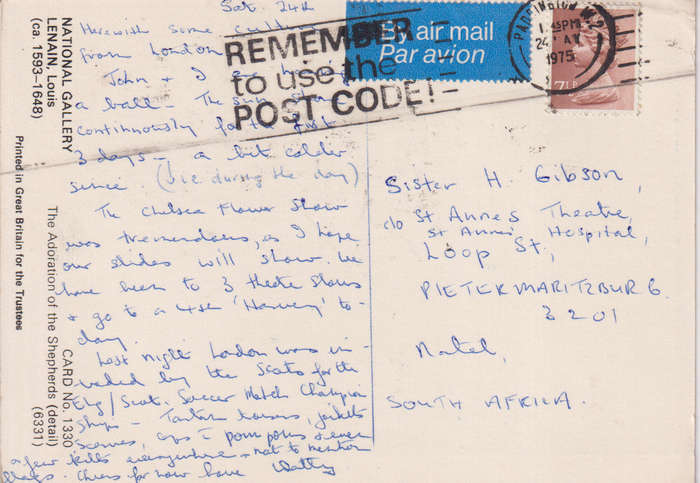 Sat. 24th
Herewith some
from London
John + I are
a ball. The sun
continuously for the first
3 days - a bit colder
since. (via during the day)
The Chelsea Flower Show
was tremendous, as I hope
our slides will show. We
have been to 3 theatre shows
& go to a 4th 'Harvey' to-
day.
Last night London was in-
vaded by the Scots for the
Eng/Scot. Soccer Match Champion
ships - Tartan trousers, jackets
scarves, caps c pom poms & even
a few kilts everywhere - not to mention
flags. Cheers for now love
REMEMBER
to use the
POST CODE!
By air mail
Par avion
PADDINGTON
1 PM
24 MAY
1975
7½
Sister H. Gibson,
c/o St Anne's Theatre,
St Anne's Hospital,
Loop St,
PIETERMARITZBURG.
3201
Natal,
SOUTH AFRICA.
NATIONAL GALLERY
LENAIN, Louis
(ca. 1593–1648)
The Adoration of the Shepherds (detail)
CARD No. 1330
(6331)
Printed in Great Britain for the Trustees